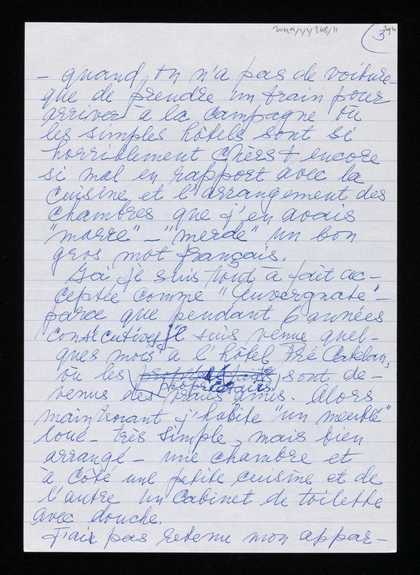 3
- quand, on n'a pas de voiture
que de prendre un train pour
arriver à la campagne où
les simples hôtels sont si
horriblement chers + encore
si mal en rapport avec la
cuisine et l'arrangement des
chambres que j'en avais
"marre" - "merde" un bon
gros mot français.
je suis tout à fait ac-
ceptée comme
parce que pendant 6 années
consecutives je suis venue quel-
ques mois à l'hôtel Pré Catelan,
où les propriétaires sont de-
venus des vrais amis. Alors
maintenant j'habite "un meublé"
loué - très simple, mais bien
arrangé - une chambre et
à côté une petite cuisine et de
l'autre un cabinet de toilette
avec douche.
J'ai pas retenu mon appar-